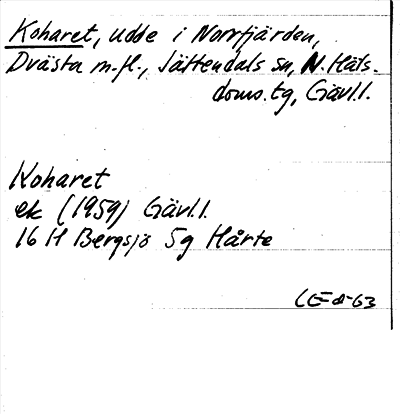 Koharet, udde i Norrfjärden,
Dvästa m.fl., Jättendals sn, N. Häls.
doms.tg, Gävl.l.
Koharet
ek (1959) Gävl.l.
16 H Bergsjö 5g Hårte